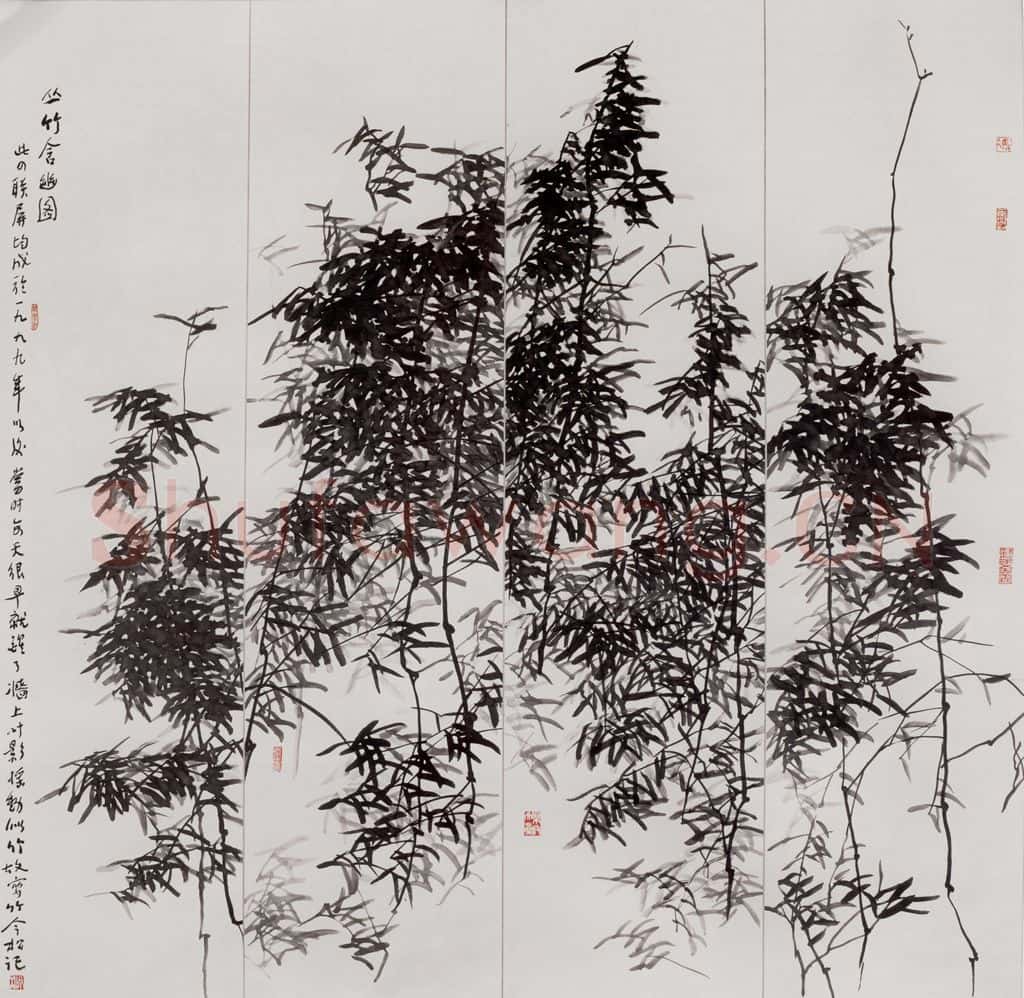 丛竹含幽图
此四联屏均成于一九九九年以后 当时每天很早就醒了 墙上叶影摇动似竹 故写竹 今松记
Shufawang.CN